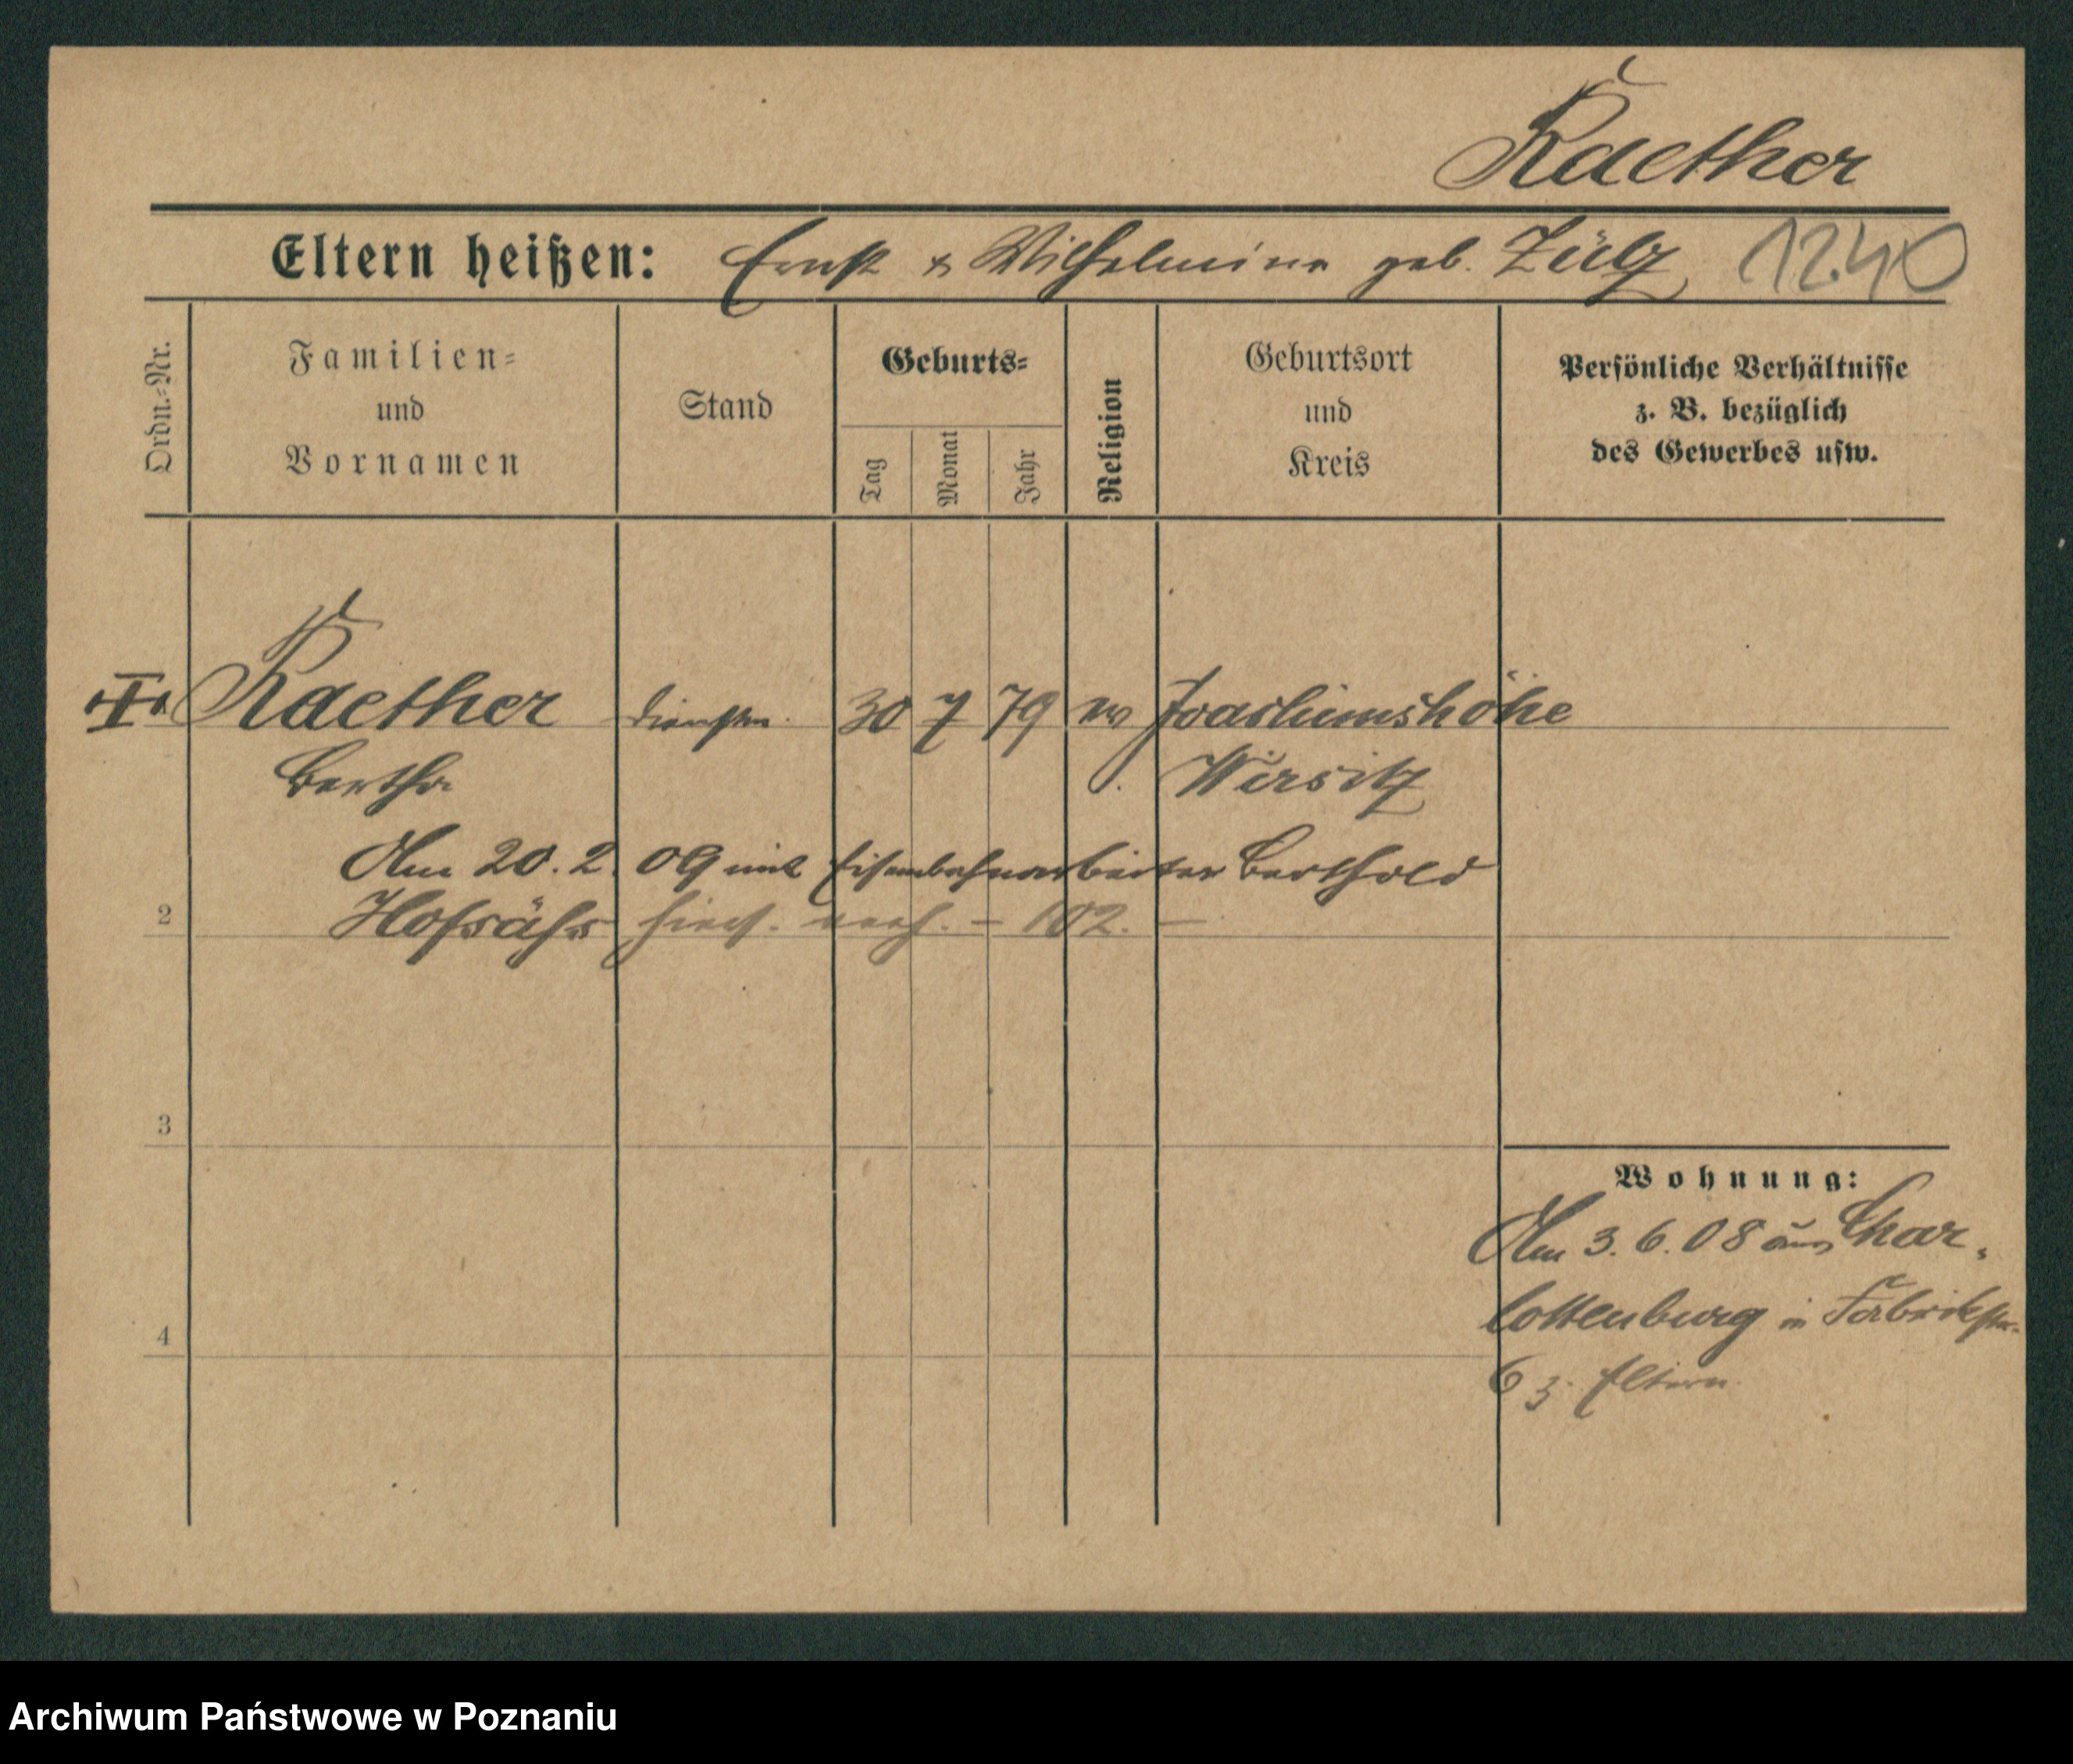 Raether
Eltern heißen: Ernst & Wilhelmine geb. Zülz 1240
Ordn.=Nr.
Familien=
und
Vornamen
Stand
Geburts=
Tag
Monat
Jahr
Religion
Geburtsort
und
Kreis
Persönliche Verhältnisse
z. B. bezüglich
des Gewerbes usw.
I Raether 30 7 79 Joachimshöhe
Bertha Wirsitz
Am 20. 2. 09 mit Eisenbahnarbeiter Berthold
2 Hofsäß verh. – 102. –
3
Wohnung:
Am 3. 6. 08 aus Char-
lottenburg in Fabrikstr.
4
6 z. Eltern
Archiwum Państwowe w Poznaniu